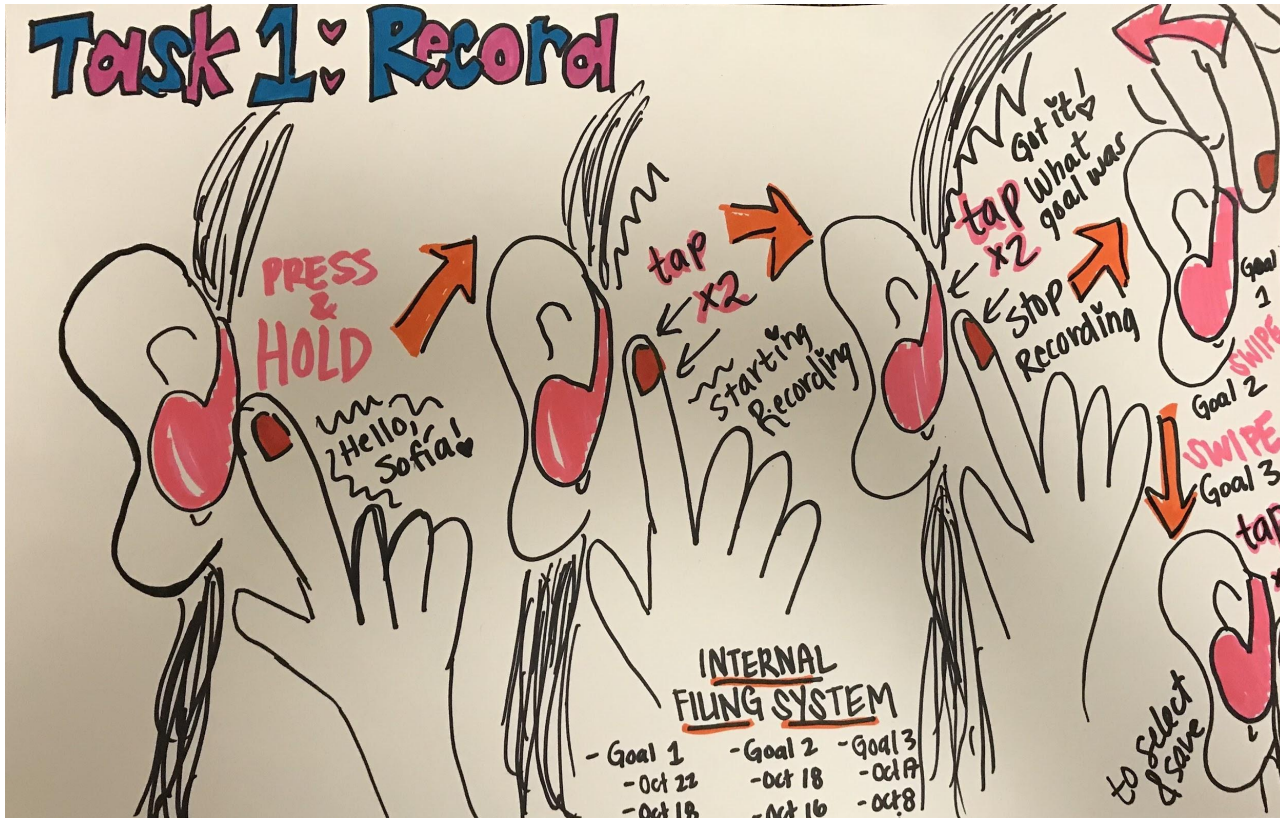 Task 1: Record
PRESS
&
HOLD
Hello,
Sofía!
tap
x2
Starting
Recording
Got it!
What
goal was
tap
x2
Stop
Recording
Goal
1
SWIPE
Goal 2
SWIPE
Goal 3
tap
to select
& save
INTERNAL
FILING SYSTEM
- Goal 1 - Goal 2 - Goal 3
- Oct 22 - Oct 18 - Oct 17
- Oct 18 - Oct 16 - Oct 8